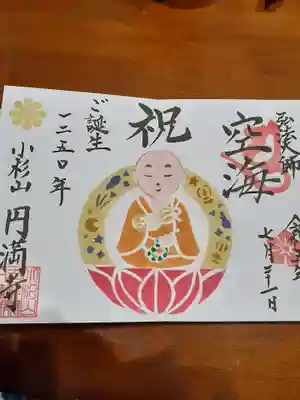 弘法大師
空海
祝
ご誕生
一二五〇年
小杉山
円満寺
七月二十一日